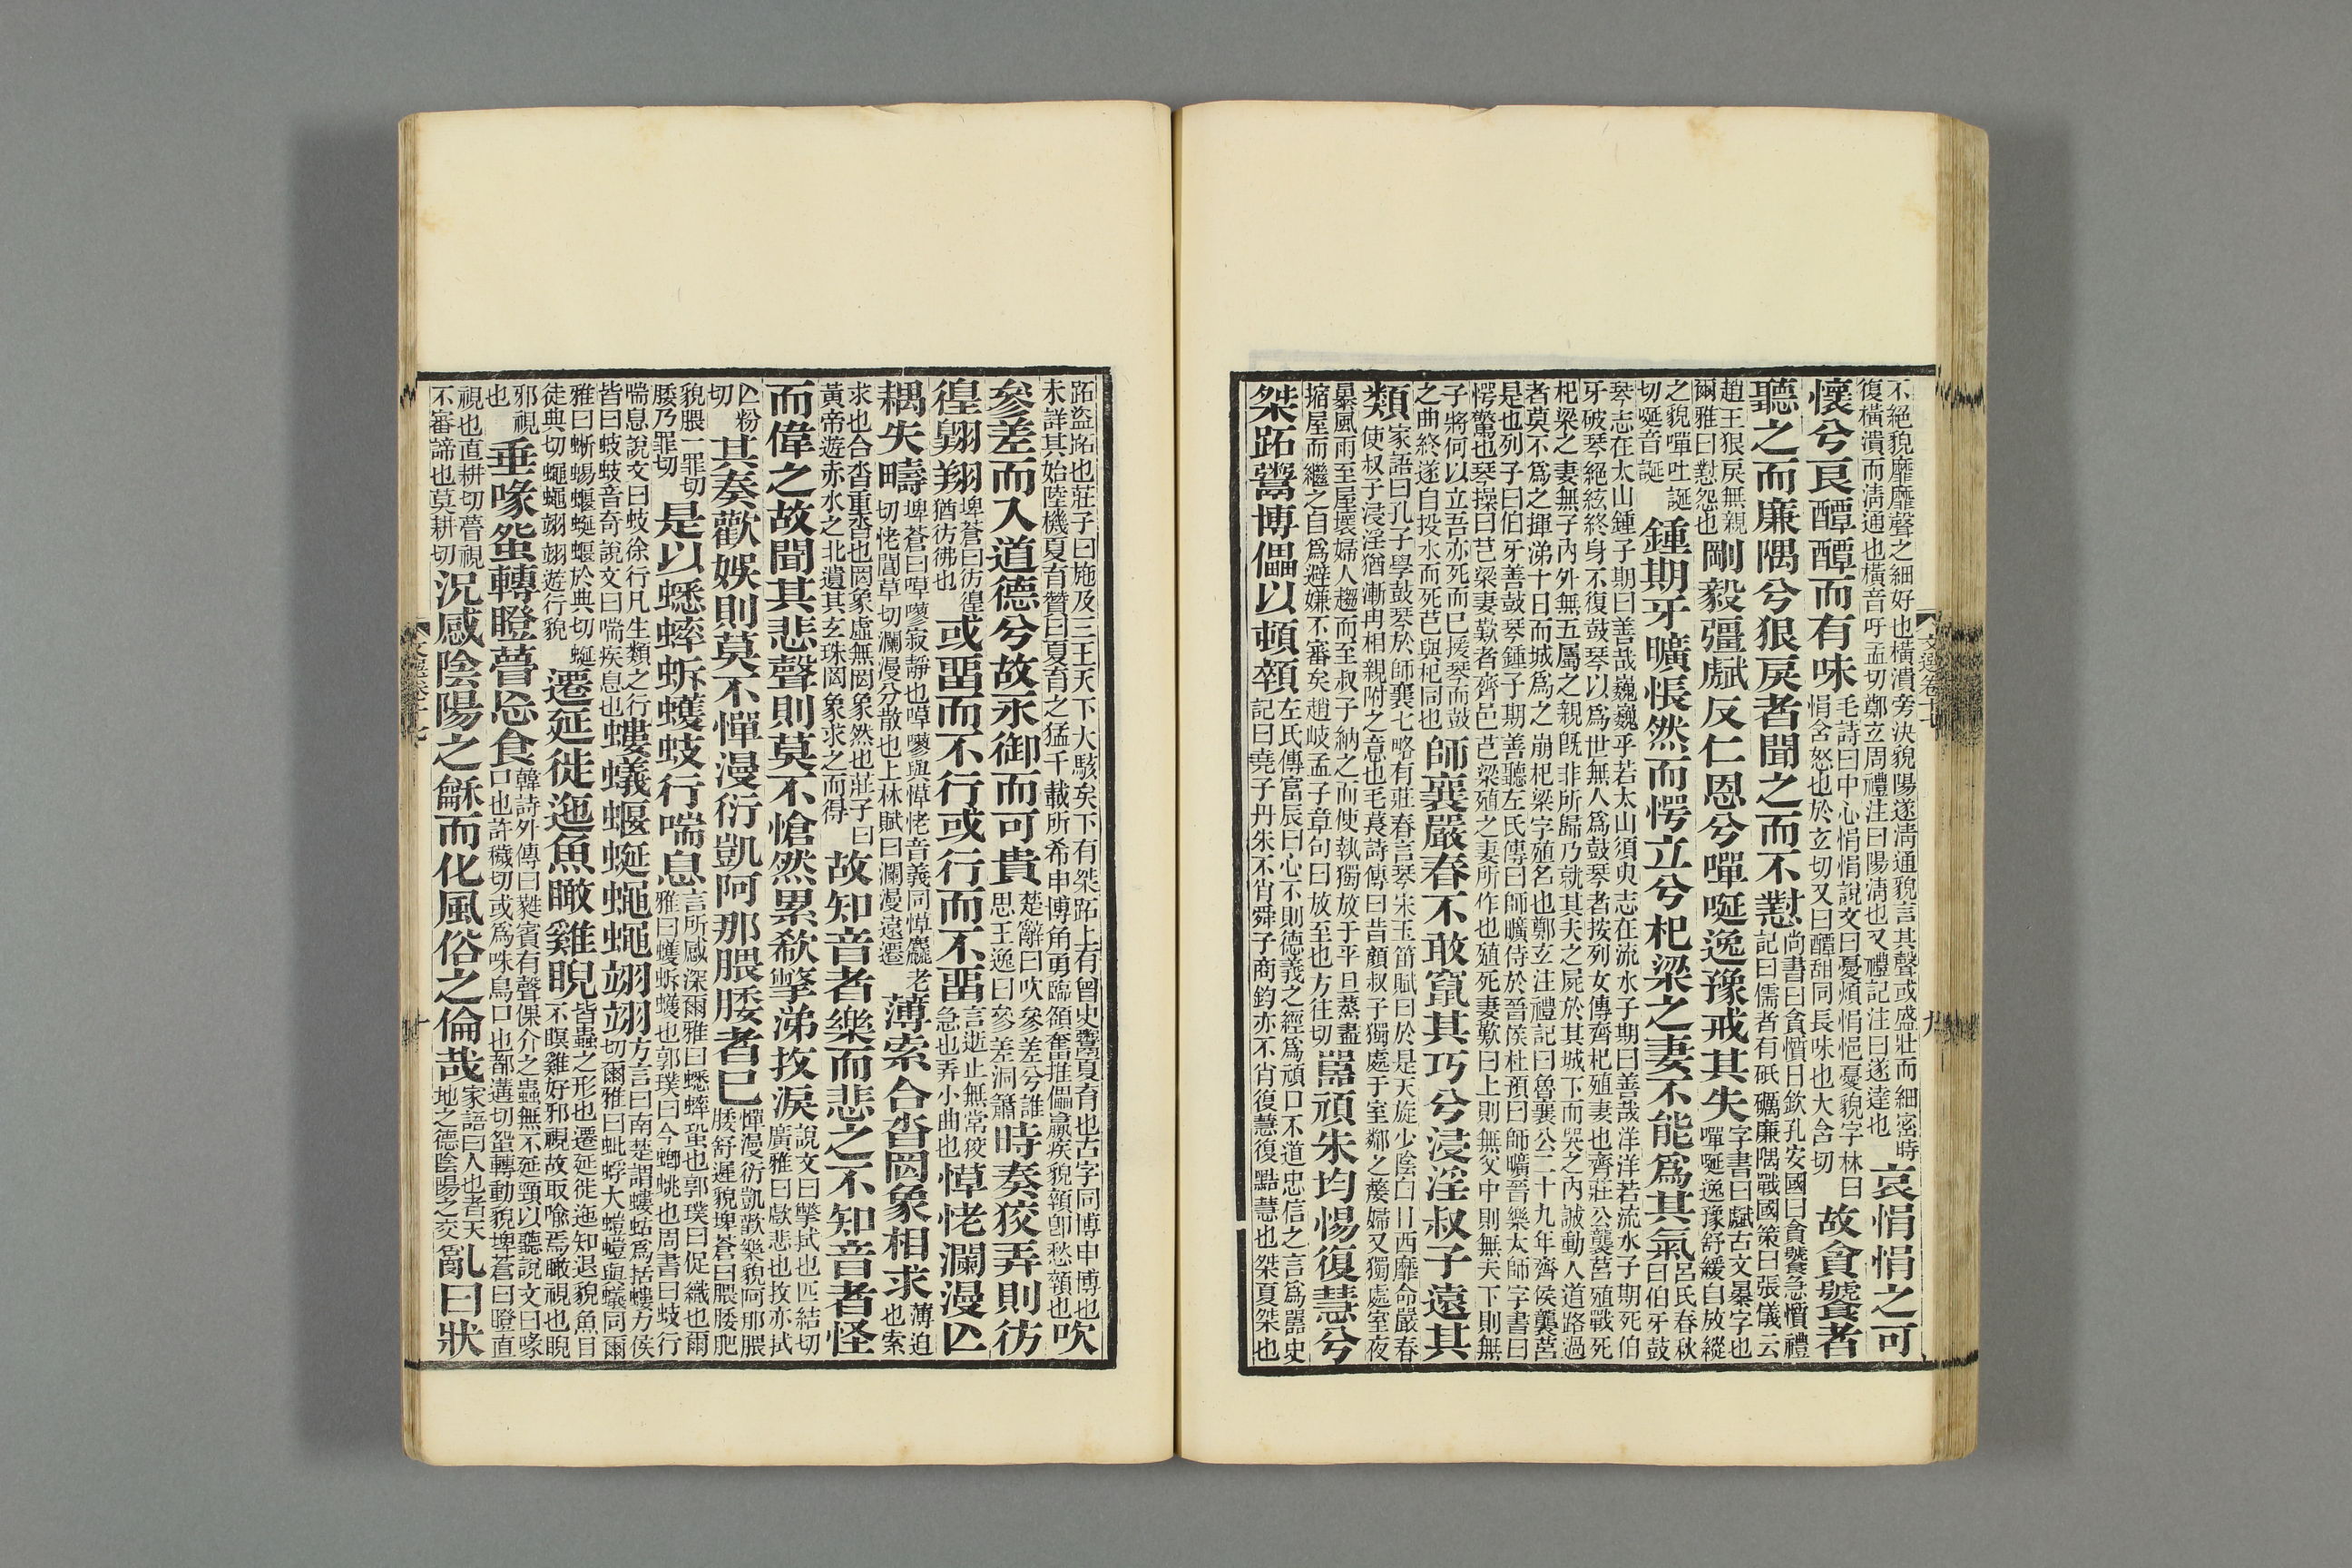 不絕貌靡靡聲之細好也橫潰旁決貌陽遂淸通貌言其聲或盛壯而細密時
復橫潰而淸通也橫音呼孟切鄭立周禮注曰陽淸也又禮記注曰遂達也
哀悁悁之可
懷兮良醰醰而有味
毛詩曰中心悁悁說文曰憂煩悁悒憂貌字林曰
悁含怒也於玄切又曰醰甜同長味也大含切
故貪饕者
聽之而廉隅兮狠戾者聞之而不懟
尚書曰貪惏日欽孔安國曰貪饕急惏禮
記曰儒者有砥礪廉隅戰國策曰張儀云
趙王狠戾無親
爾雅曰懟怨也
剛毅彊虣反仁恩兮嘽唌逸豫戒其失
字書曰虣古文暴字也
嘽唌逸豫舒緩自放縱
之貌嘽吐誕
切唌音誕
鍾期牙曠悵然而愕立兮杞梁之妻不能爲其氣
呂氏春秋
曰伯牙鼓
琴志在太山鍾子期曰善哉巍巍乎若太山須臾志在流水子期曰善哉洋洋若流水子期死伯
牙破琴絕絃終身不復鼓琴以爲世無人爲鼓琴者按列女傳齊杞殖妻也齊莊公襲莒殖戰死
杞梁之妻無子內外無五屬之親旣非所歸乃就其夫之屍於其城下而哭之內誠動人道路過
者莫不爲之揮涕十日而城爲之崩杞梁字殖名也鄭玄注禮記曰魯襄公二十九年齊侯襲莒
是也列子曰伯牙善鼓琴鍾子期善聽左氏傳曰師曠侍於晉侯杜預曰師曠晉樂太師字書曰
愕驚也琴操曰芑梁妻歎者齊邑芑梁殖之妻所作也殖死妻歎曰上則無父中則無夫下則無
子將何以立吾亦死而已援琴而鼓
之曲終遂自投水而死芑與杞同也
師襄嚴春不敢竄其巧兮浸淫叔子遠其
類
家語曰孔子學鼓琴於師襄七略有莊春言琴宋玉笛賦曰於是天旋少陰白日西靡命嚴春
使叔子浸淫猶漸冉相親附之意也毛萇詩傳曰昔顏叔子獨處于室鄰之釐婦又獨處室夜
暴風雨至屋壞婦人趨而至叔子納之而使執燭放于平旦蒸盡
縮屋而繼之自爲避嫌不審矣趙岐孟子章句曰放至也方往切
嚚頑朱均惕復慧兮
桀跖鬻博儡以頓顇
左氏傳富辰曰心不則德義之經爲頑口不道忠信之言爲嚚史
記曰堯子丹朱不肖舜子商鈞亦不肖復慧復黠慧也桀夏桀也
跖盜跖也莊子曰施及三王天下大駭矣下有桀跖上有曾史鬻夏育也古字同博申博也
未詳其始陸機夏育贊曰夏育之猛千載所希申博角勇臨頟奮推儡羸疾貌顇卽愁顇也
吹
參差而入道德兮故永御而可貴
楚辭曰吹參差兮誰
思王逸曰參差洞簫
時奏狡弄則彷
徨翺翔
埤蒼曰彷徨
猶彷彿也
或畱而不行或行而不畱
言逝止無常狡
急也弄小曲也
愺恅瀾漫亾
耦失疇
埤蒼曰嘷嘐寂靜也嘷嘐與愺恅音義同愺麤老
切恅閭草切瀾漫分散也上林賦曰瀾漫遠遷
薄索合沓罔象相求
薄迫
也索
求也合沓重沓也罔象虛無罔象然也莊子曰
黃帝遊赤水之北遺其玄珠罔象求之而得
故知音者樂而悲之不知音者怪
而偉之故聞其悲聲則莫不愴然累欷擥涕抆淚
說文曰擥拭也匹結切
廣雅曰歔悲也抆亦拭
亾粉
切
其奏歡娛則莫不憚漫衍凱阿那腲腇者已
憚漫衍凱歡樂貌阿那腲
腇舒遲貌埤蒼曰腲腇肥
貌腲一罪切
腇乃罪切
是以蟋蟀蚸蠖蚑行喘息
言所感深爾雅曰蟋蟀蛩也郭璞曰促織也爾
雅曰蠖蚸蠖也郭璞曰今蝍蛷也周書曰蚑行
喘息說文曰蚑徐行凡生類之行
皆曰蚑蚑音奇說文曰喘疾息也
螻蟻蝘蜒蠅蠅翊翊
方言曰南楚謂螻蛄爲括螻力侯
切爾雅曰蚍蜉大螘螘與蟻同爾
雅曰蜥蜴蝘蜒蝘於典切蜒
徒典切蠅蠅翊翊遊行貌
遷延徙迤魚瞰雞睨
皆蟲之形也遷延徙迤知退貌魚目
不瞑雞好邪視故取喩焉瞰視也睨
邪視
也
垂喙䖤轉瞪瞢忘食
韓詩外傳曰蕤賓有聲倮介之蟲無不延頸以聽說文曰喙
口也許穢切或爲咮鳥口也都遘切䖤轉動貌埤蒼曰瞪直
視也直耕切瞢視
不審諦也莫耕切
況感陰陽之龢而化風俗之倫哉
家語曰人也者天
地之德陰陽之交
亂曰狀
文選卷十七
九
文選卷十七
十